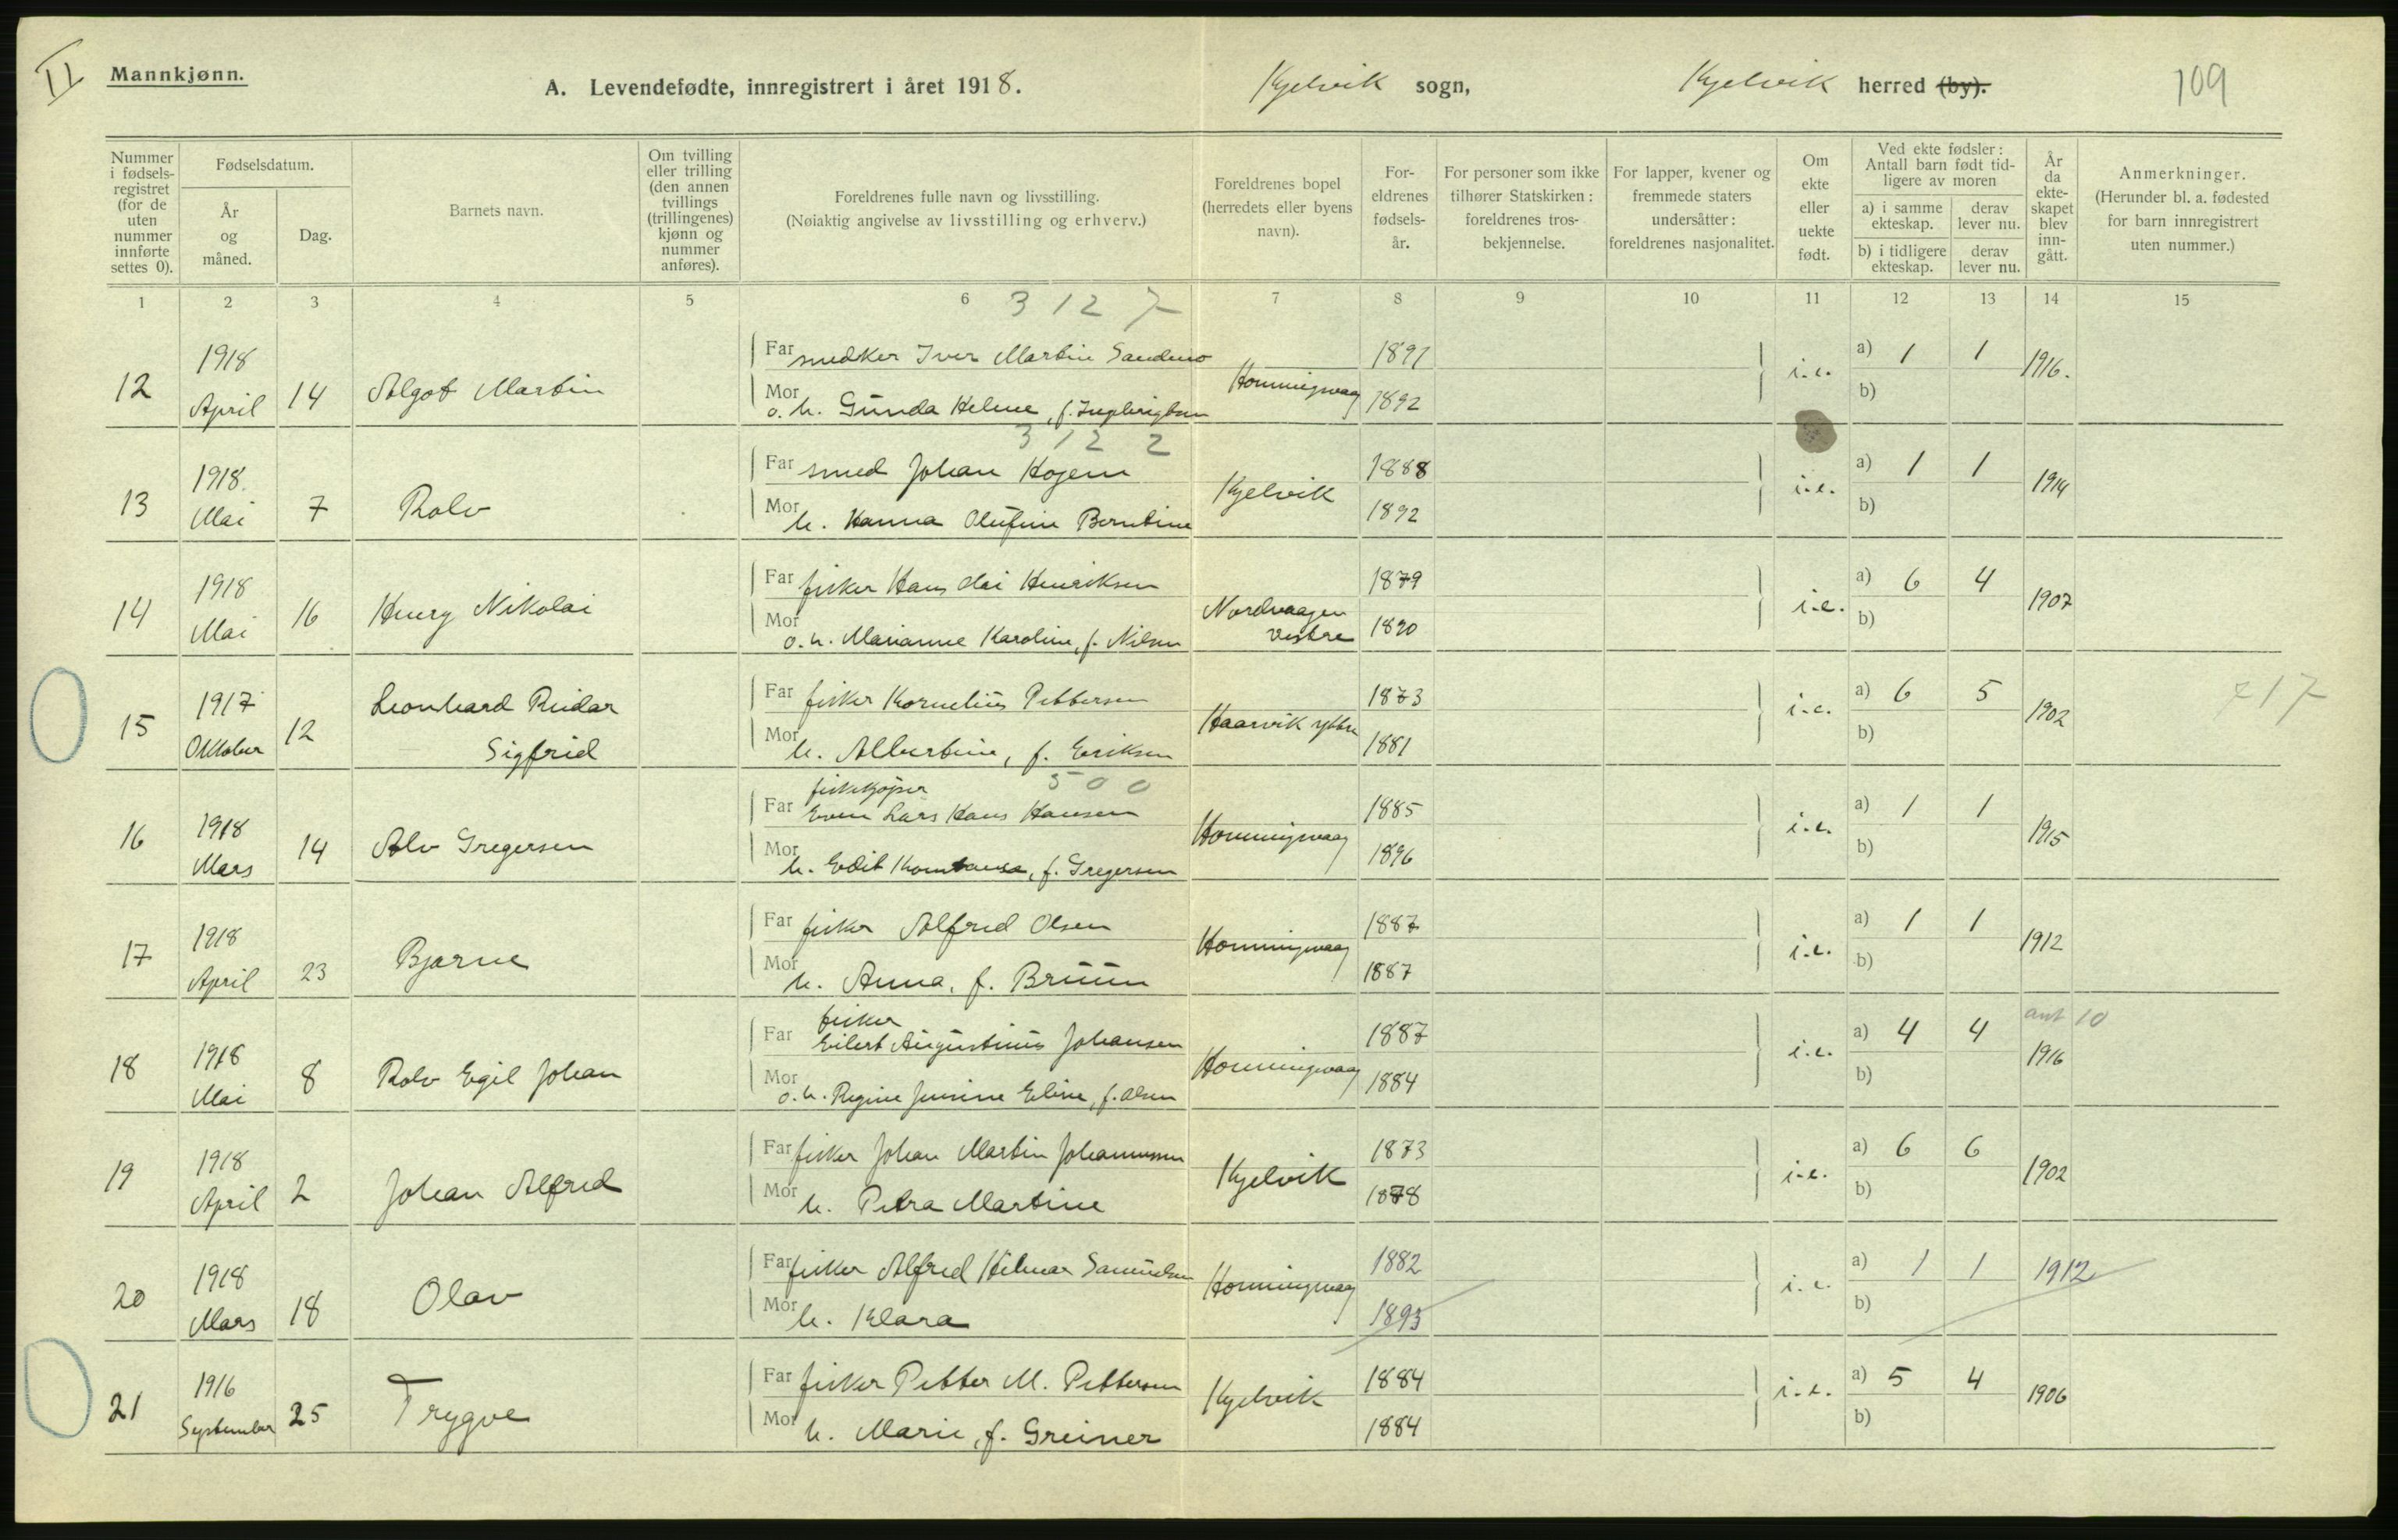 II
Mannkjønn.
A. Levendefødte, innregistrert i året 1918.
Kjelvik sogn,
Kjelvik herred (by).
109
Nummer i fødsels-registret (for de uten nummer innførte settes 0).
Fødselsdatum.
År og måned.
Dag.
Barnets navn.
Om tvilling eller trilling (den annen tvillings (trillingenes) kjønn og nummer anføres).
Foreldrenes fulle navn og livsstilling.
(Nøiaktig angivelse av livsstilling og erhverv.)
Foreldrenes bopel (herredets eller byens navn).
For-eldrenes fødsels-år.
For personer som ikke tilhører Statskirken: foreldrenes tros-bekjennelse.
For lapper, kvener og fremmede staters undersåtter: foreldrenes nasjonalitet.
Om ekte eller uekte født.
Ved ekte fødsler: Antall barn født tid-ligere av moren
a) i samme ekteskap.
derav lever nu.
b) i tidligere ekteskap.
derav lever nu.
År da ekte-skapet blev inn-gått.
Anmerkninger.
(Herunder bl. a. fødested for barn innregistrert uten nummer.)
1 2 3 4 5 6 7 8 9 10 11 12 13 14 15
3 1 2 7
12 1918 April 14 Algot Martin
Far snedker Iver Martin Sandmo 1891
Mor o. h. Gunda Helene, f. 1892
Honningvaag i.e. a) 1 1 b) 1916.
3 1 2 2
13 1918. Mai 7 Rolv
Far smed Johan Hogem 1888
Mor h. Hanna Olufine Berntine 1892
Kjelvik i.e. a) 1 1 b) 1914
14 1918 Mai 16 Henry Nikolai
Far fisker Hans Henriksen 1879
Mor o. h. Marianne Karoline, f. Nilsen 1890
Nordvaagen vestre i.e. a) 6 4 b) 1907
15 1917 Oktober 12 Leonhard Reidar Sigfrid
Far fisker Kornelius Pettersen 1873
Mor h. Albertine, f. Eriksen 1881
Haarvik yttre i.e. a) 6 5 b) 1902
17
5 0 0
16 1918 Mars 14 Alv Gregersen
fiskekjøper
Far Even Lars Hans Hansen 1885
Mor h. Edit Konstanse, f. Gregersen 1896
Honningvaag i.e. a) 1 1 b) 1915
17 1918 April 23 Bjarne
Far fisker Alfred Olsen 1887
Mor h. Anna, f. Bruun 1887
Honningvaag i.e. a) 1 1 b) 1912
18 1918 Mai 8 Rolv Egil Johan
fisker
Far Eilert Augustinus Johansen 1887
Mor o. h. Regine Jensine Eline, f. Olsen 1884
Honningvaag i.e. a) 4 4 b) ant 10 1916
19 1918 April 2 Johan Alfred
Far fisker Johan Martin Johannessen 1873
Mor h. Petra Martine 1878
Kjelvik i.e. a) 6 6 b) 1902
20 1918 Mars 18 Olav
Far fisker Alfred Hilmar Samuelsen 1882
Mor h. Klara 1893
Honningvaag i.e. a) 1 1 b) 1912
21 1916 September 25 Trygve
Far fisker Petter M. Pettersen 1884
Mor h. Marie, f. Greiner 1884
Kjelvik i.e. a) 5 4 b) 1906